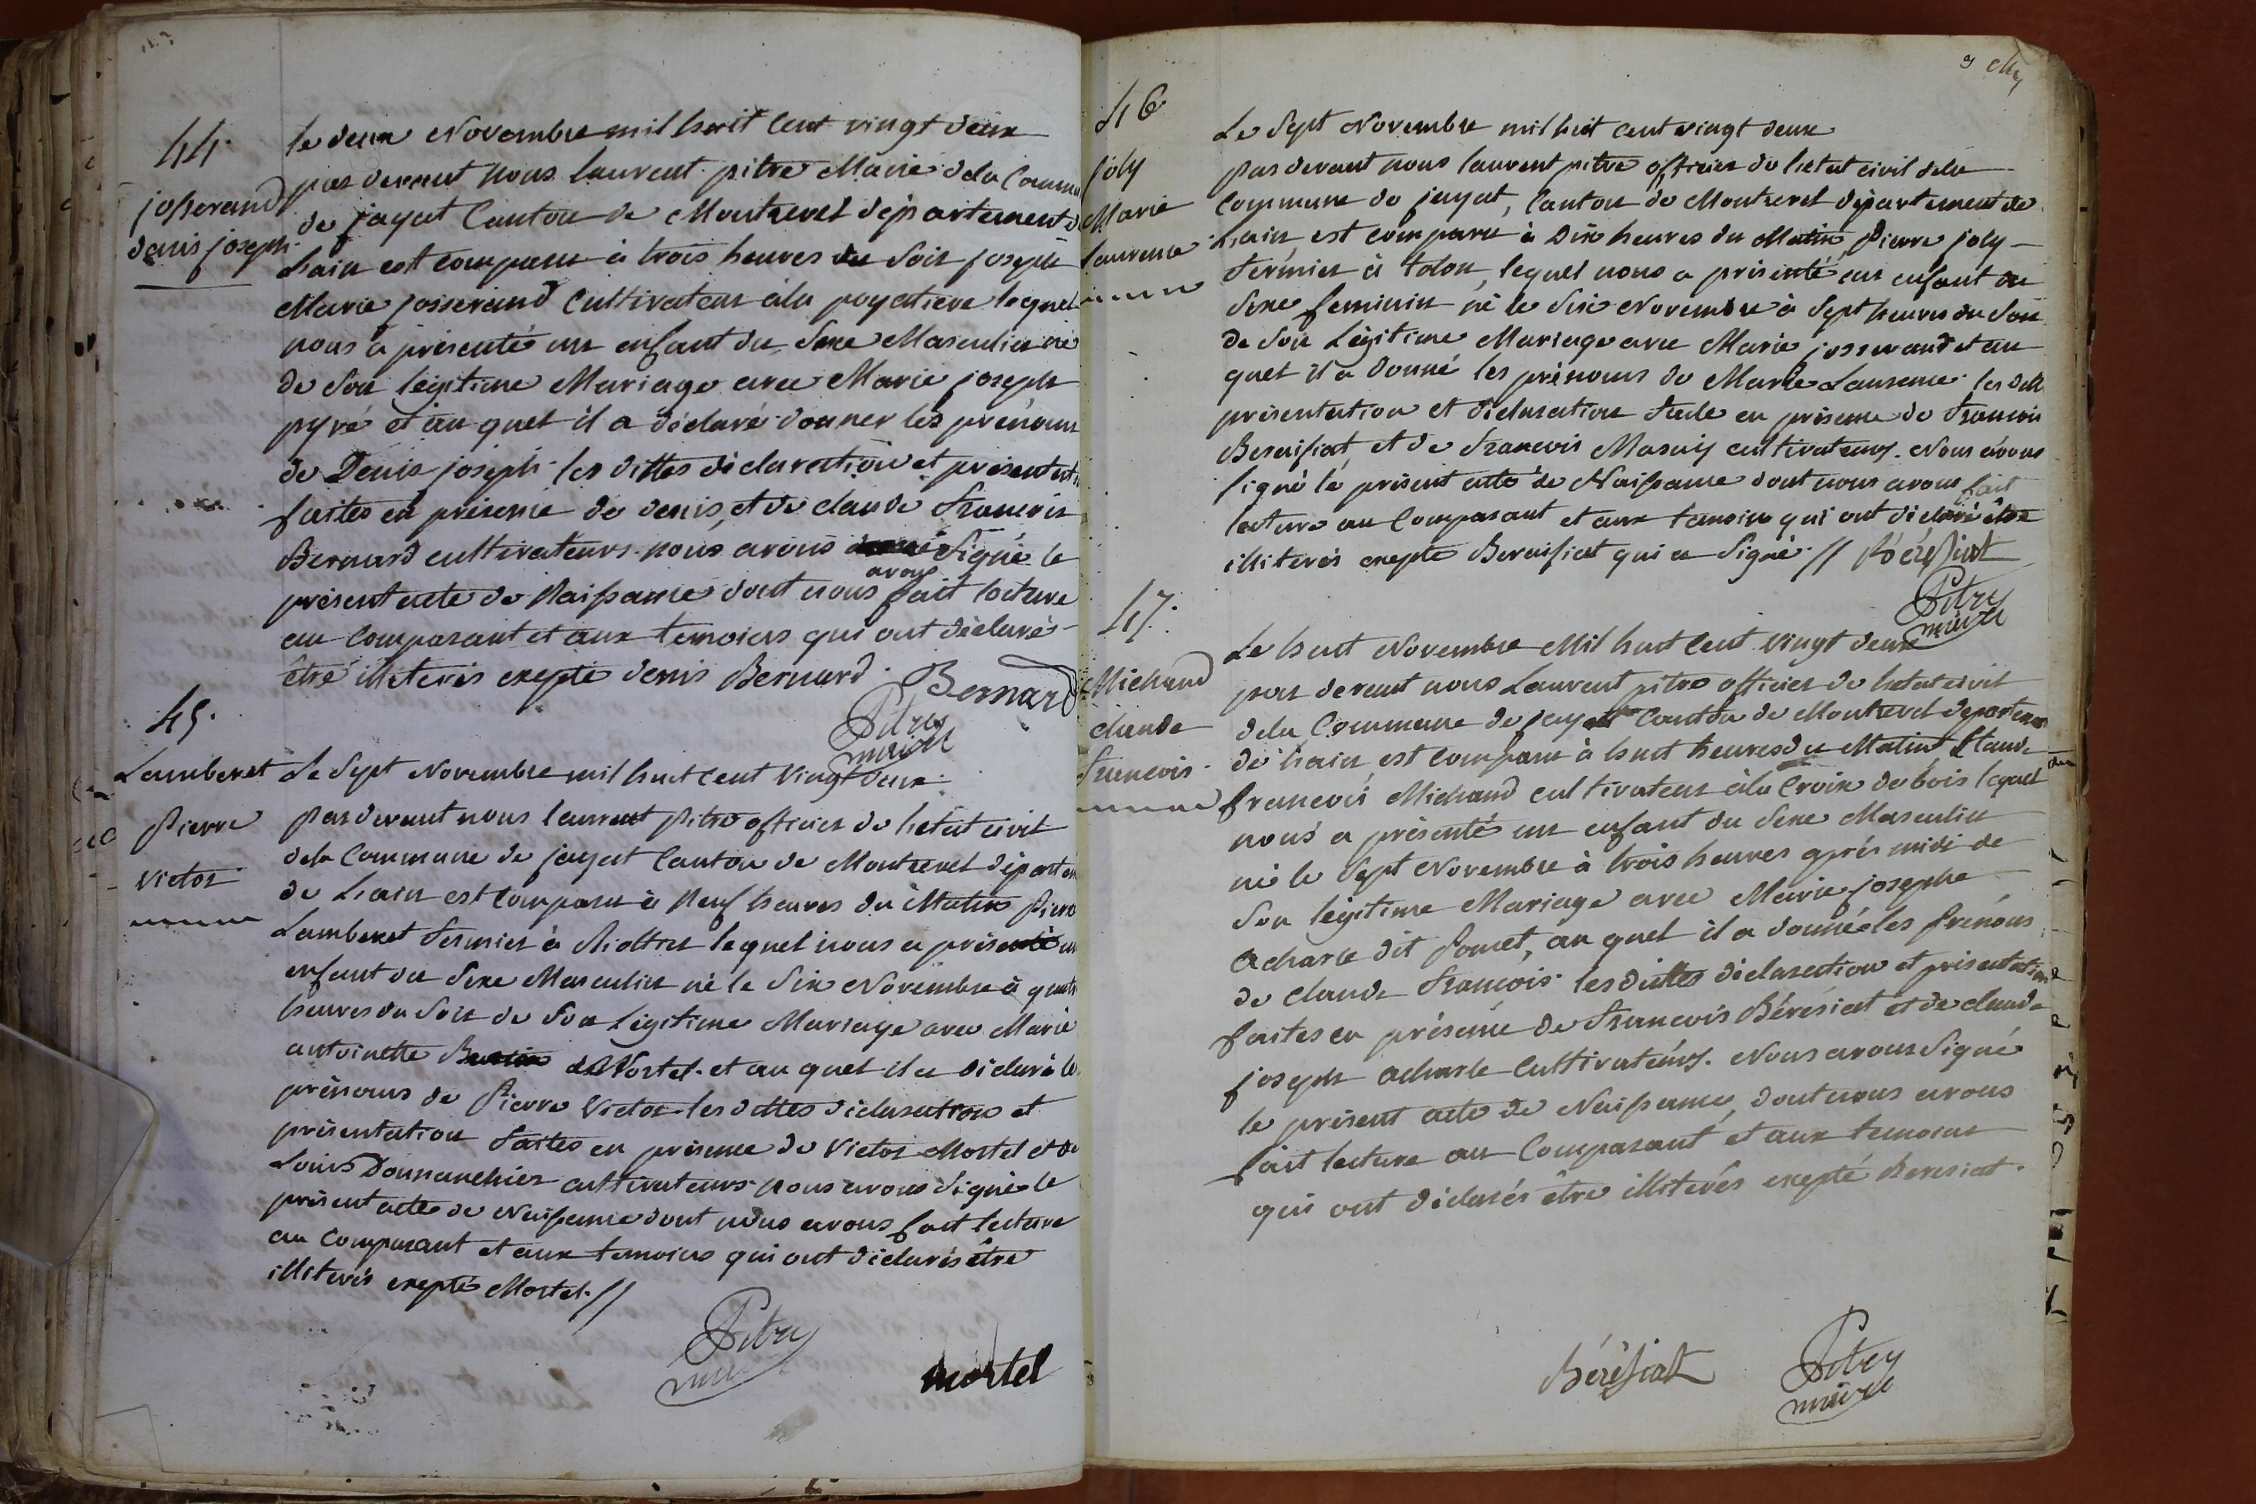 44.
josserand
denis joseph.
le deux Novembre mil huit cent vingt deux
par devant nous laurent pitre Maire dela Commu
de jayat Canton de Montrevel département d
Lain est comparu à trois heures du Soir joseph
Marie josserand Cultivateur àla poyatiere lequel
nous a présenté un enfant du Sexe Masculin né
de Son légitime Mariage avec Marie joseph
pyré et au quel il a déclaré donner les prénoms
de Denis joseph. les dittes déclaration et présentat
faites en présence de denis, et de claude francois
Bernard cultivateurs. nous avons signé le
présent acte de Naissance dont nous avons fait lecture
au Comparant et aux temoins qui ont déclaré
être illiterés exepté denis Bernard.
Bernard
Pitre
maire
45.
Lamberet
Pierre
victor
Le Sept Novembre mil huit cent vingt deux.
Par devant nous laurent Pitre officier de letat civil
dela Commune de jayat Canton de Montrevel départem
de Lain est comparu à Neuf heures du Matin Pierre
Lamberet fermier à lequel nous a présenté un
enfant du Sexe Masculin né le Six Novembre à quatr
heures du Soir de Son Légitime Mariage avec Marie
antoinette Mortel. et au quel il a déclaré les
prénoms de Pierre Victor. les dittes déclaration et
présentation faites en présence de Victor Mortel et de
Louis Donnanchier cultivateurs nous avons signé le
présent acte de Naissance dont nous avons fait lecture
au Comparant et aux temoins qui ont déclarés être
illiterés exepté Mortel. //
Pitre
maire
mortel
46
joly
Marie
laurence
Le Sept Novembre mil huit cent vingt deux
par devant nous laurent pitre officier de letat civil dela
Commune de jayat, Canton de Montrevel département de
Lain, est comparu à Dix heures du Matin Pierre joly
fermier à tolon, lequel nous a présenté un enfant du
Sexe feminin né le Six Novembre à Sept heures du Soir
de Son Légitime Mariage avec Marie josserand et au
quel il a donné les prénoms de Marie Laurence. les ditte
présentation et déclaration faite en présence de francois
Beresiat et de francois Masuy cultivateurs. Nous avons
signé le présent acte de Naissance dont nous avons fait
lecture au Comparant et aux temoins qui ont déclaré être
illiterés exepté Beresiat qui a Signé. // Bérésiat
Pitre
maire
47.
Michaud
claude
francois.
Le huit Novembre Mil huit Cent vingt deux
par devant nous Laurent pitre officier de letat civil
dela Commune de jayat Canton de Montrevel departem
de lain, est comparu à huit heures du Matin, Claude
francois Michaud cultivateur àla Croix de bois lequel
nous a présenté un enfant du Sexe Masculin
né le Sept Novembre à trois heures après midi de
Son légitime Mariage avec Marie josephe
acharle dit Pomet, au quel il a donné les prénoms
de Claude francois. les dittes déclaration et présentation
faites en présence de francois Bérésiat et de claude
joseph acharle Cultivateurs. Nous avons Signé
le présent acte de Naissance, dont nous avons
fait lecture au Comparant et aux temoins
qui ont déclarés être illiterés exepté Beresiat.
Bérésiat
Pitre
maire